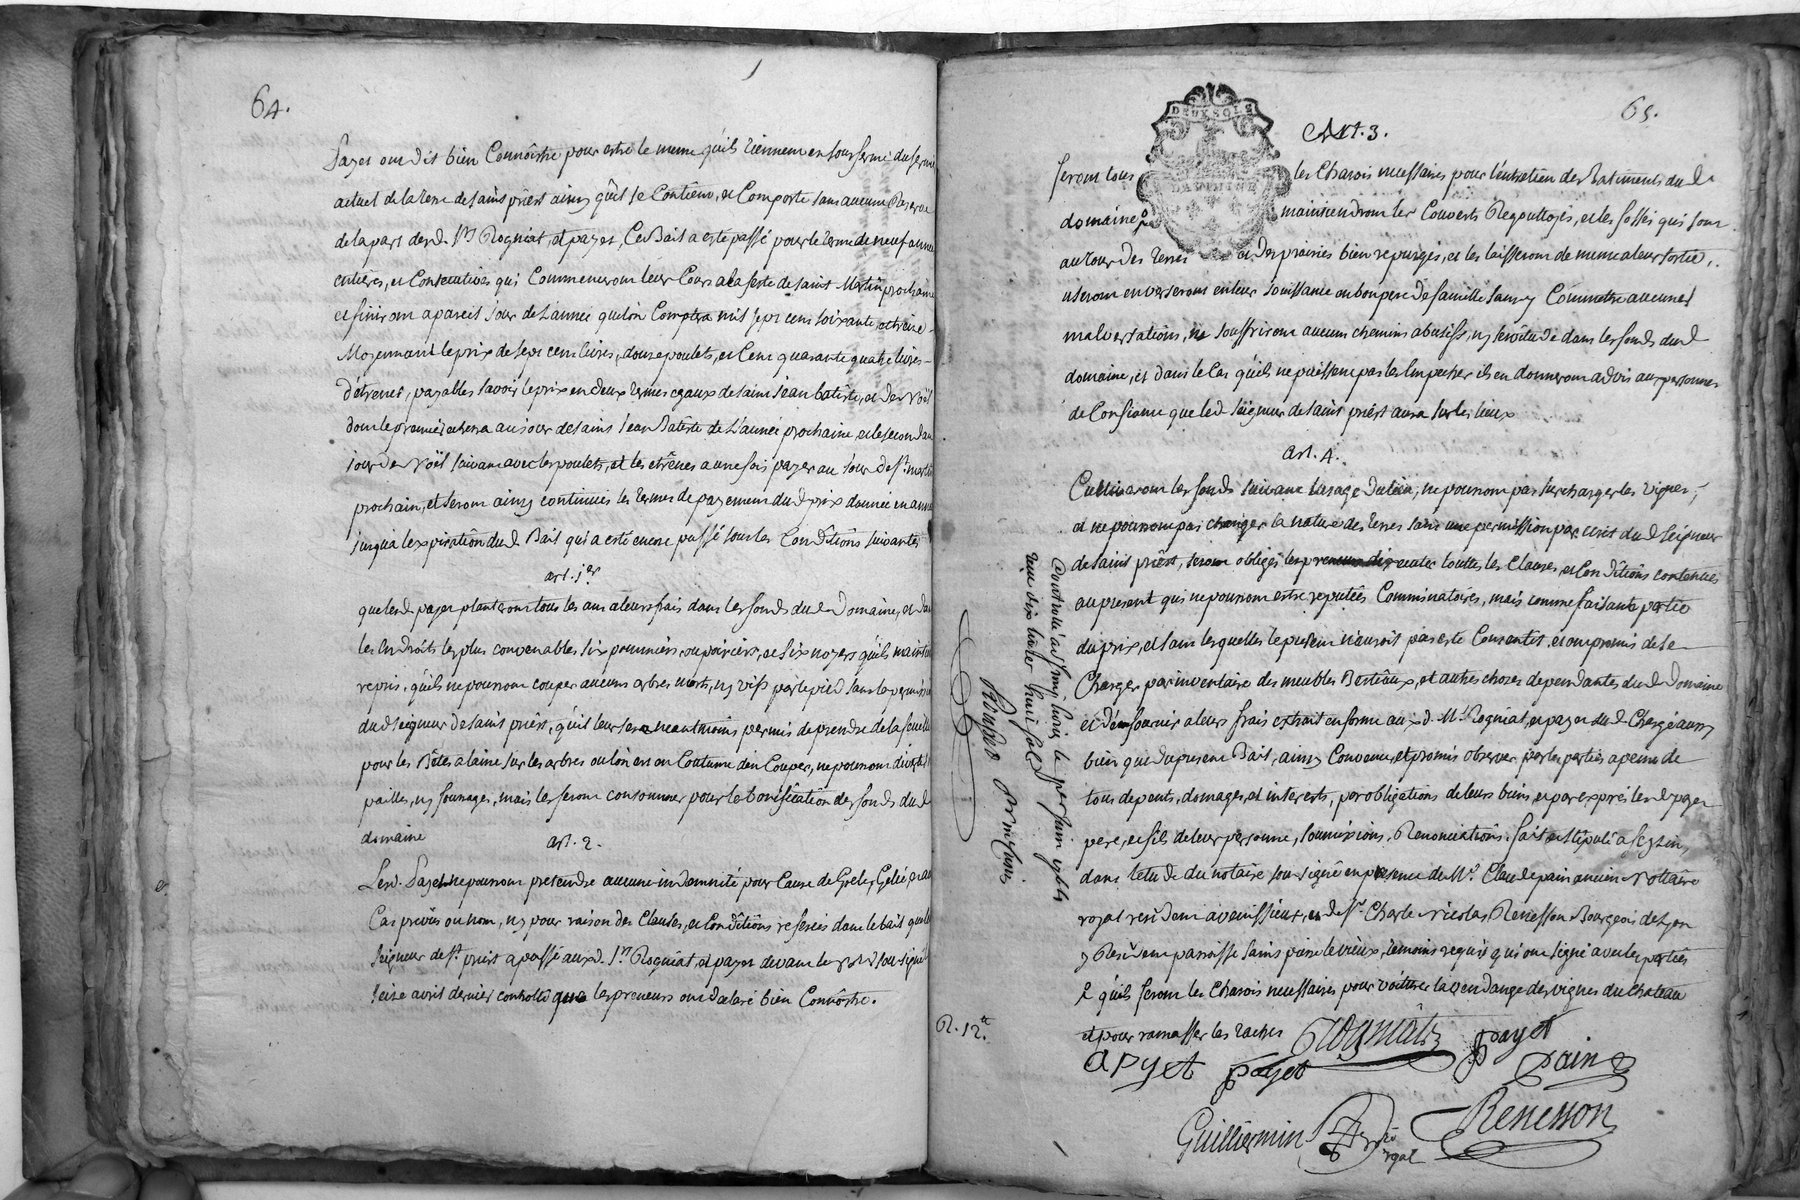 64.
Payet ont dit bien Connoitre pour estre le meme qu'ils tiennent en sousferme du fermier
actuel de la terre de saint priest ainsy qu'il se Contient, et Comporte sans aucune Reserve
de la part desd. Srs Rogniat, et payet, Ce Bail a esté passé pour le terme de neuf années
entières, et Consecutives qui Commenceront leur Cours a la feste de saint Martin prochaine
et finiront a pareil jour de L'année que lon Comptera mil sept cens soixante et treize
Moyennant le prix de sept cent livres, douze poulets, et Cent quarante quatre livres
d'étrenes, payables savoir le prix en deux termes egaux de saint Jean batiste, et de Noël
dont le premier echera au jour de saint Jean Batiste de L'année prochaine, et le second au
jour de Noël suivant avec les poulets, et les etrênes a une fois payer au jour de St. martin
prochain, et seront ainsy continués les termes de payement dud prix d'année en année
jusqua lexpiration dud Bail qui a esté encore passé sous les Conditions suivantes
art. 1er
que lesd payet planteront tous les ans a leurs frais dans les fonds dud Domaine, et dans
les Endroits les plus convenables six pommiers, ou poiriers, et six noyers qu'ils maintiendront
repris. qu'ils ne pourront couper aucuns arbres morts, ny vifs par le pied sans la permission
dud seigneur de saint priest, qu'il leur sera neantmoins permis de prendre de la feuille
pour les Bêtes a laine sur les arbres ou lon est en Coutume den Couper, ne pourront divertir
pailles, ny fourrages, mais les feront consommer pour la bonification des fonds dud
domaine
art. 2.
Lesd. Payet ne pourront pretendre aucune indemnité pour Cause de Grele, Gelée, et autres
Cas prevûs ou non, ny pour raison des Clauses, et Conditions referées dans le bail que led
seigneur de St. priest a passé auxd. Srs Rogniat, et payet devant le notre sous-signé le
seize avril dernier controllé que les preneurs ont declaré bien Connoitre.
65.
DEUX SOLS
DAUPHINE
Art. 3.
feront tous les Charois necessaires pour l'entretien des Batiments dud
domaine maintiendront les Couverts Regouttoyés, et les fossés qui sont
autour des terres et des prairies bien repurgés, et les laisseront de meme a leur sortie,
useront en leur jouissance en bon pere de famille sans y Commettre aucunes
malversations, ne souffriront aucuns chemins abusifs, ny servitude dans les fonds dud
domaine, et dans le Cas qu'ils ne puissent pas les Empecher ils en donneront advis aux personnes
de Confiance que led seigneur de saint priest aura sur les lieux
art. 4.
Cultiveront les fonds suivant lusage du lieu, ne pourront pas surcharger les vignes,
et ne pourront pas changer la nature des terres sans une permission par ecrit dud seigneur
de saint priest, seront obligés les preneurs d'executer touttes les Clauses, et Conditions contenues
au present qui ne pourront estre reputées Comminatoires, mais comme faisant partie
du prix, et sans lesquelles le present n'auroit pas esté Consenti. et ont promis de se
Charger par inventaire des meubles Bestiaux, et autres choses dependantes dud Domaine
et d'en fournir a leurs frais extrait en forme aux d. Mr Rogniat, et payet dud Chargé aussy
bien que du present Bail, ainsy Convenu, et promis observer par les parties a peine de
tous depents, domages, et interests, par obligations de leurs biens, et par exprès lesd payet
pere, et fils de leur personne, soumissions, Renonciations. fait et stipulé a feyzin,
dans l'etude du notaire sous signé en presence de Me. Claude pain ancien Nottaire
royal resident a venissieux, et de Sr. Charle Nicolas Renesson Bourgeois de Lyon
y Resident parroisse saint pierre le vieux, temoins requis qui ont signé avec les parties
& qu'ils feront les Charois necessaires pour voiturer la vendange des vignes du chateau
et pour ramasser les taches
Rogniat payet
aPyet payet pain
Renesson
Guilliermin
royal
Controllé a le per juin 1764
reçu dix livres
R. 12.